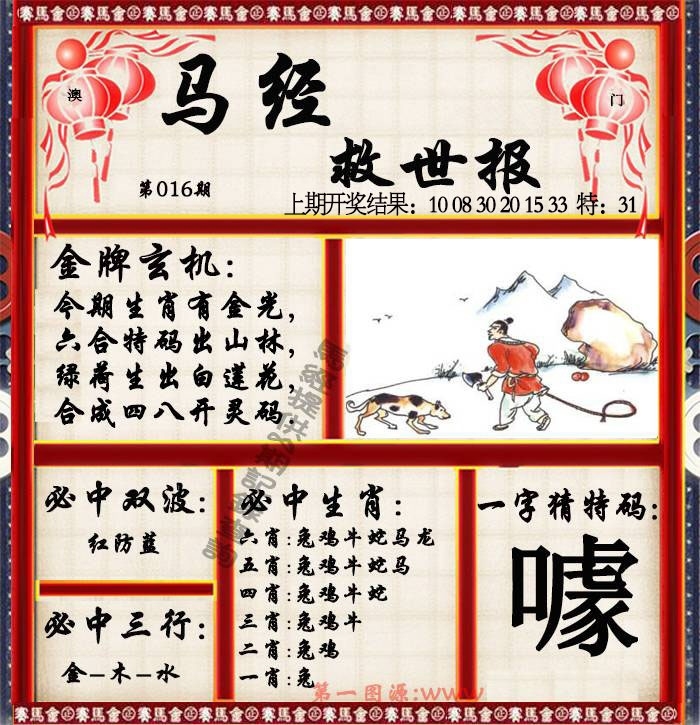 賽馬會㊣賽馬會㊣賽馬會㊣賽馬會㊣賽馬會㊣賽馬會
澳
门
马经
救世报
第016期
上期开奖结果：10 08 30 20 15 33 特：31
金牌玄机：
今期生肖有金光，
六合特码出山林，
绿荷生出白莲花，
合成四八开灵码.
必中双波：
红防蓝
必中三行：
金-木-水
必中生肖：
六肖:兔鸡牛蛇马龙
五肖:兔鸡牛蛇马
四肖:兔鸡牛蛇
三肖:兔鸡牛
二肖:兔鸡
一肖:兔
一字猜特码：
噱
第一图源:www